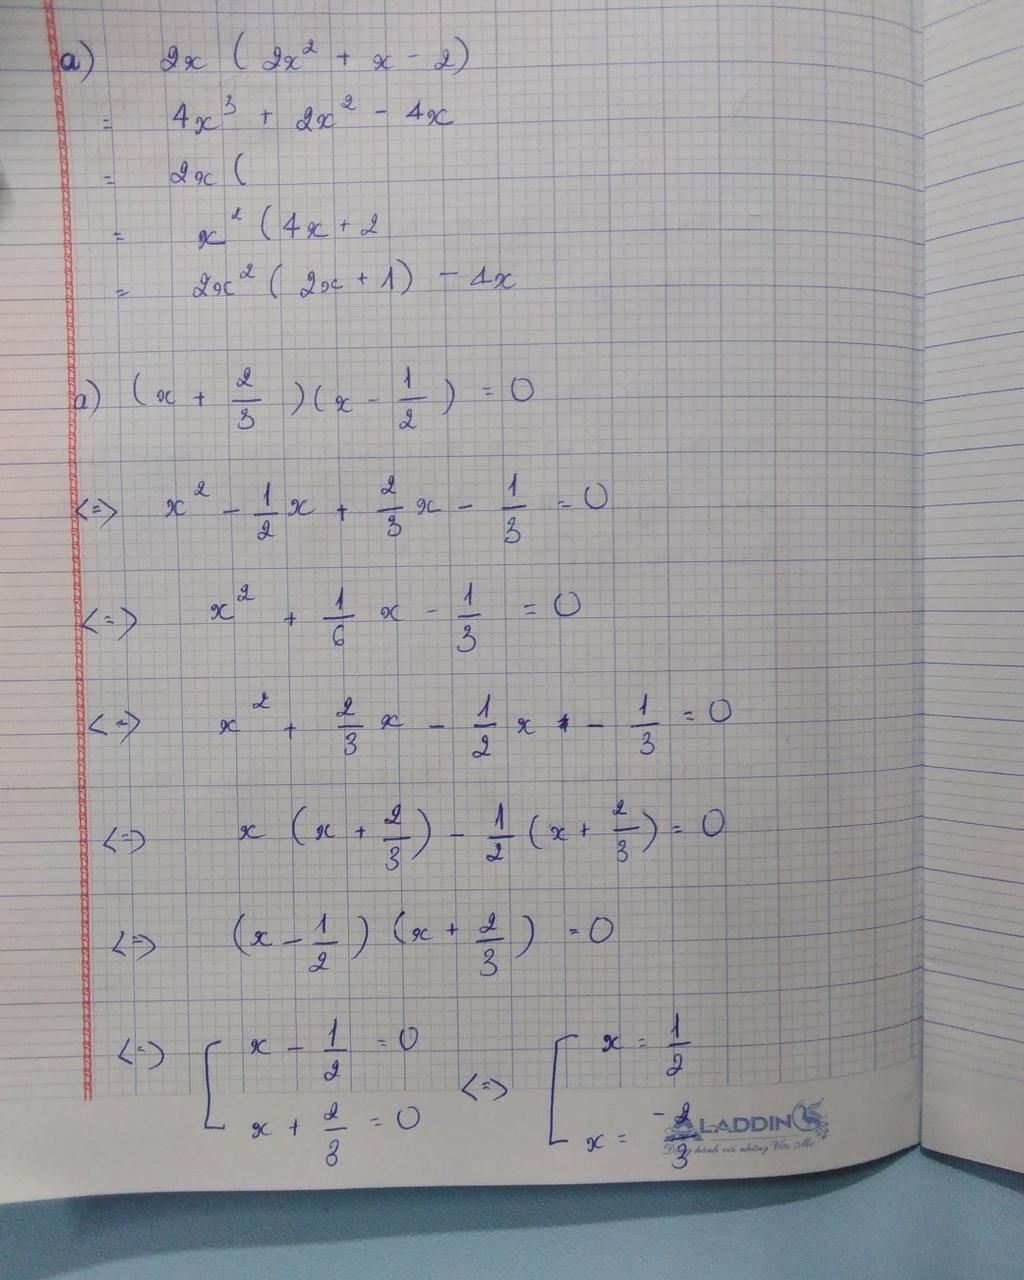 a) 2x ( 2x² + x - 2)
= 4x³ + 2x² - 4x
= 2x (
= x² ( 4x + 2
= 2x² ( 2x + 1) - 4x
a) (x + 2/3 )(x - 1/2 ) = 0
<=> x² - 1/2 x + 2/3 x - 1/3 = 0
<=> x² + 1/6 x - 1/3 = 0
<=> x² + 2/3 x - 1/2 x - 1/3 = 0
<=> x (x + 2/3) - 1/2 (x + 2/3) = 0
<=> (x - 1/2 ) (x + 2/3 ) = 0
<=> [ x - 1/2 = 0 <=> [ x = 1/2
x + 2/3 = 0 x = -2/3
ALADDIN
Đồng hành với những Ước Mơ